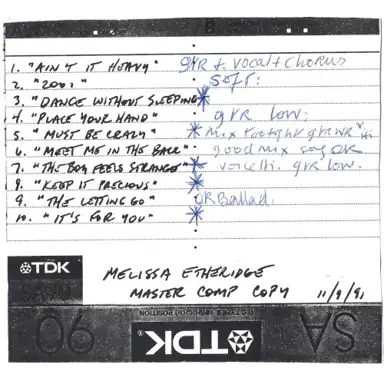 1. "AIN'T IT HEAVY" GTR + VOCAL + CHORUS
2. "2001" SOFT:
3. "DANCE WITHOUT SLEEPING" *
4. "PLACE YOUR HAND" gtr low:
5. "MUST BE CRAZY" * Mix
6. "MEET ME IN THE BACK" good mix
7. "THE BOY FEELS STRANGE" * voice Hi. gtr low.
8. "KEEP IT PRECIOUS" *
9. "THE LETTING GO" Ballad.
10. "IT'S FOR YOU" *
TDK
MELISSA ETHERIDGE
MASTER COMP COPY 11/9/91
SA
90
TDK